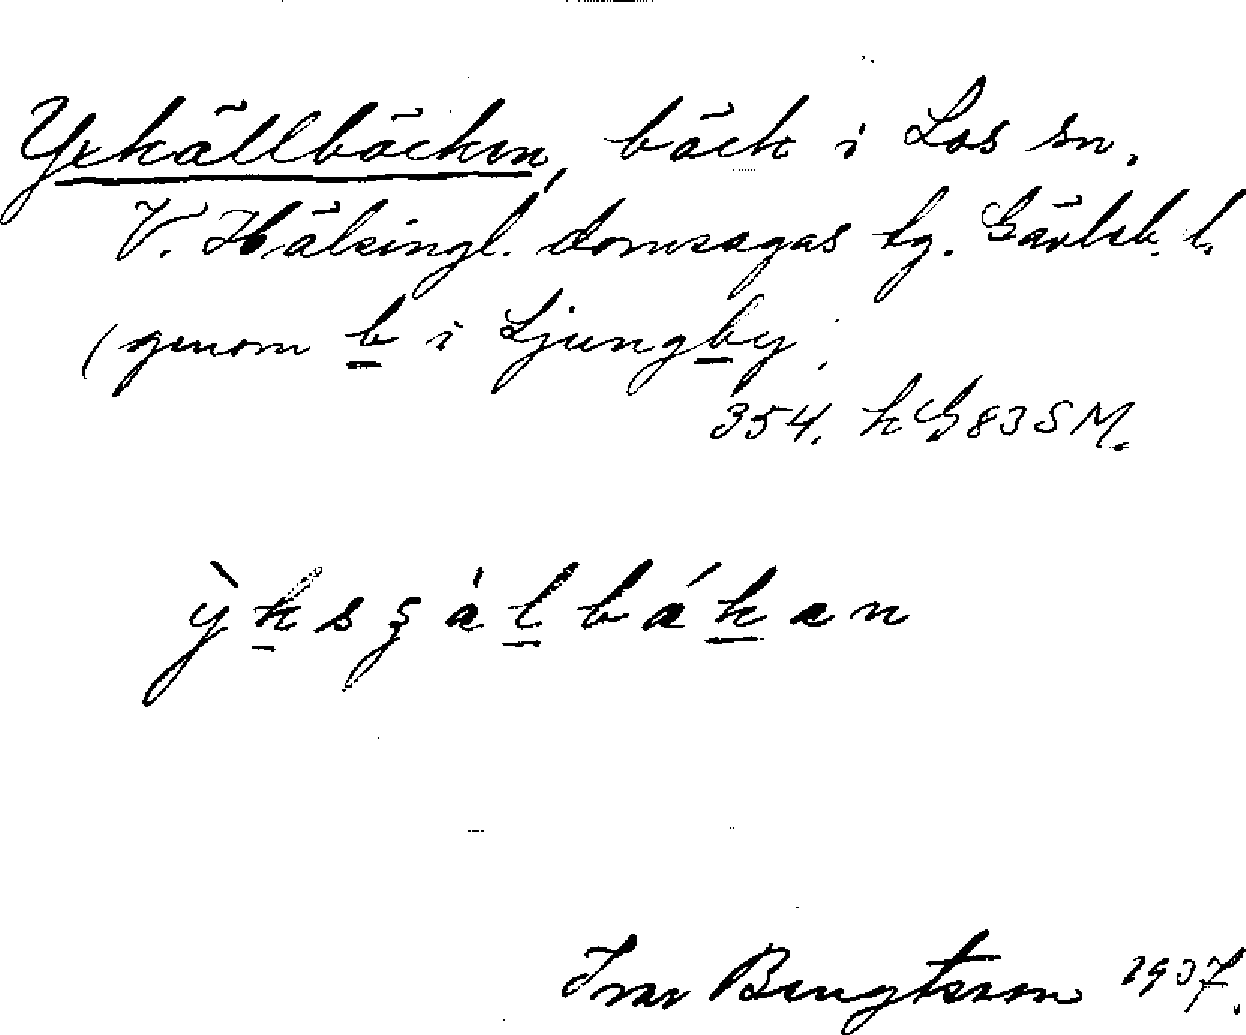 Yxkällbäcken, bäck i Los sn,
V. Hälsingl. domsagas tg. Gävleb. l.
(genom b i Ljungby,
354. k G83SM.
ỳ k s ʂ à l b á k a n
Ivar Bengtsson 1937.